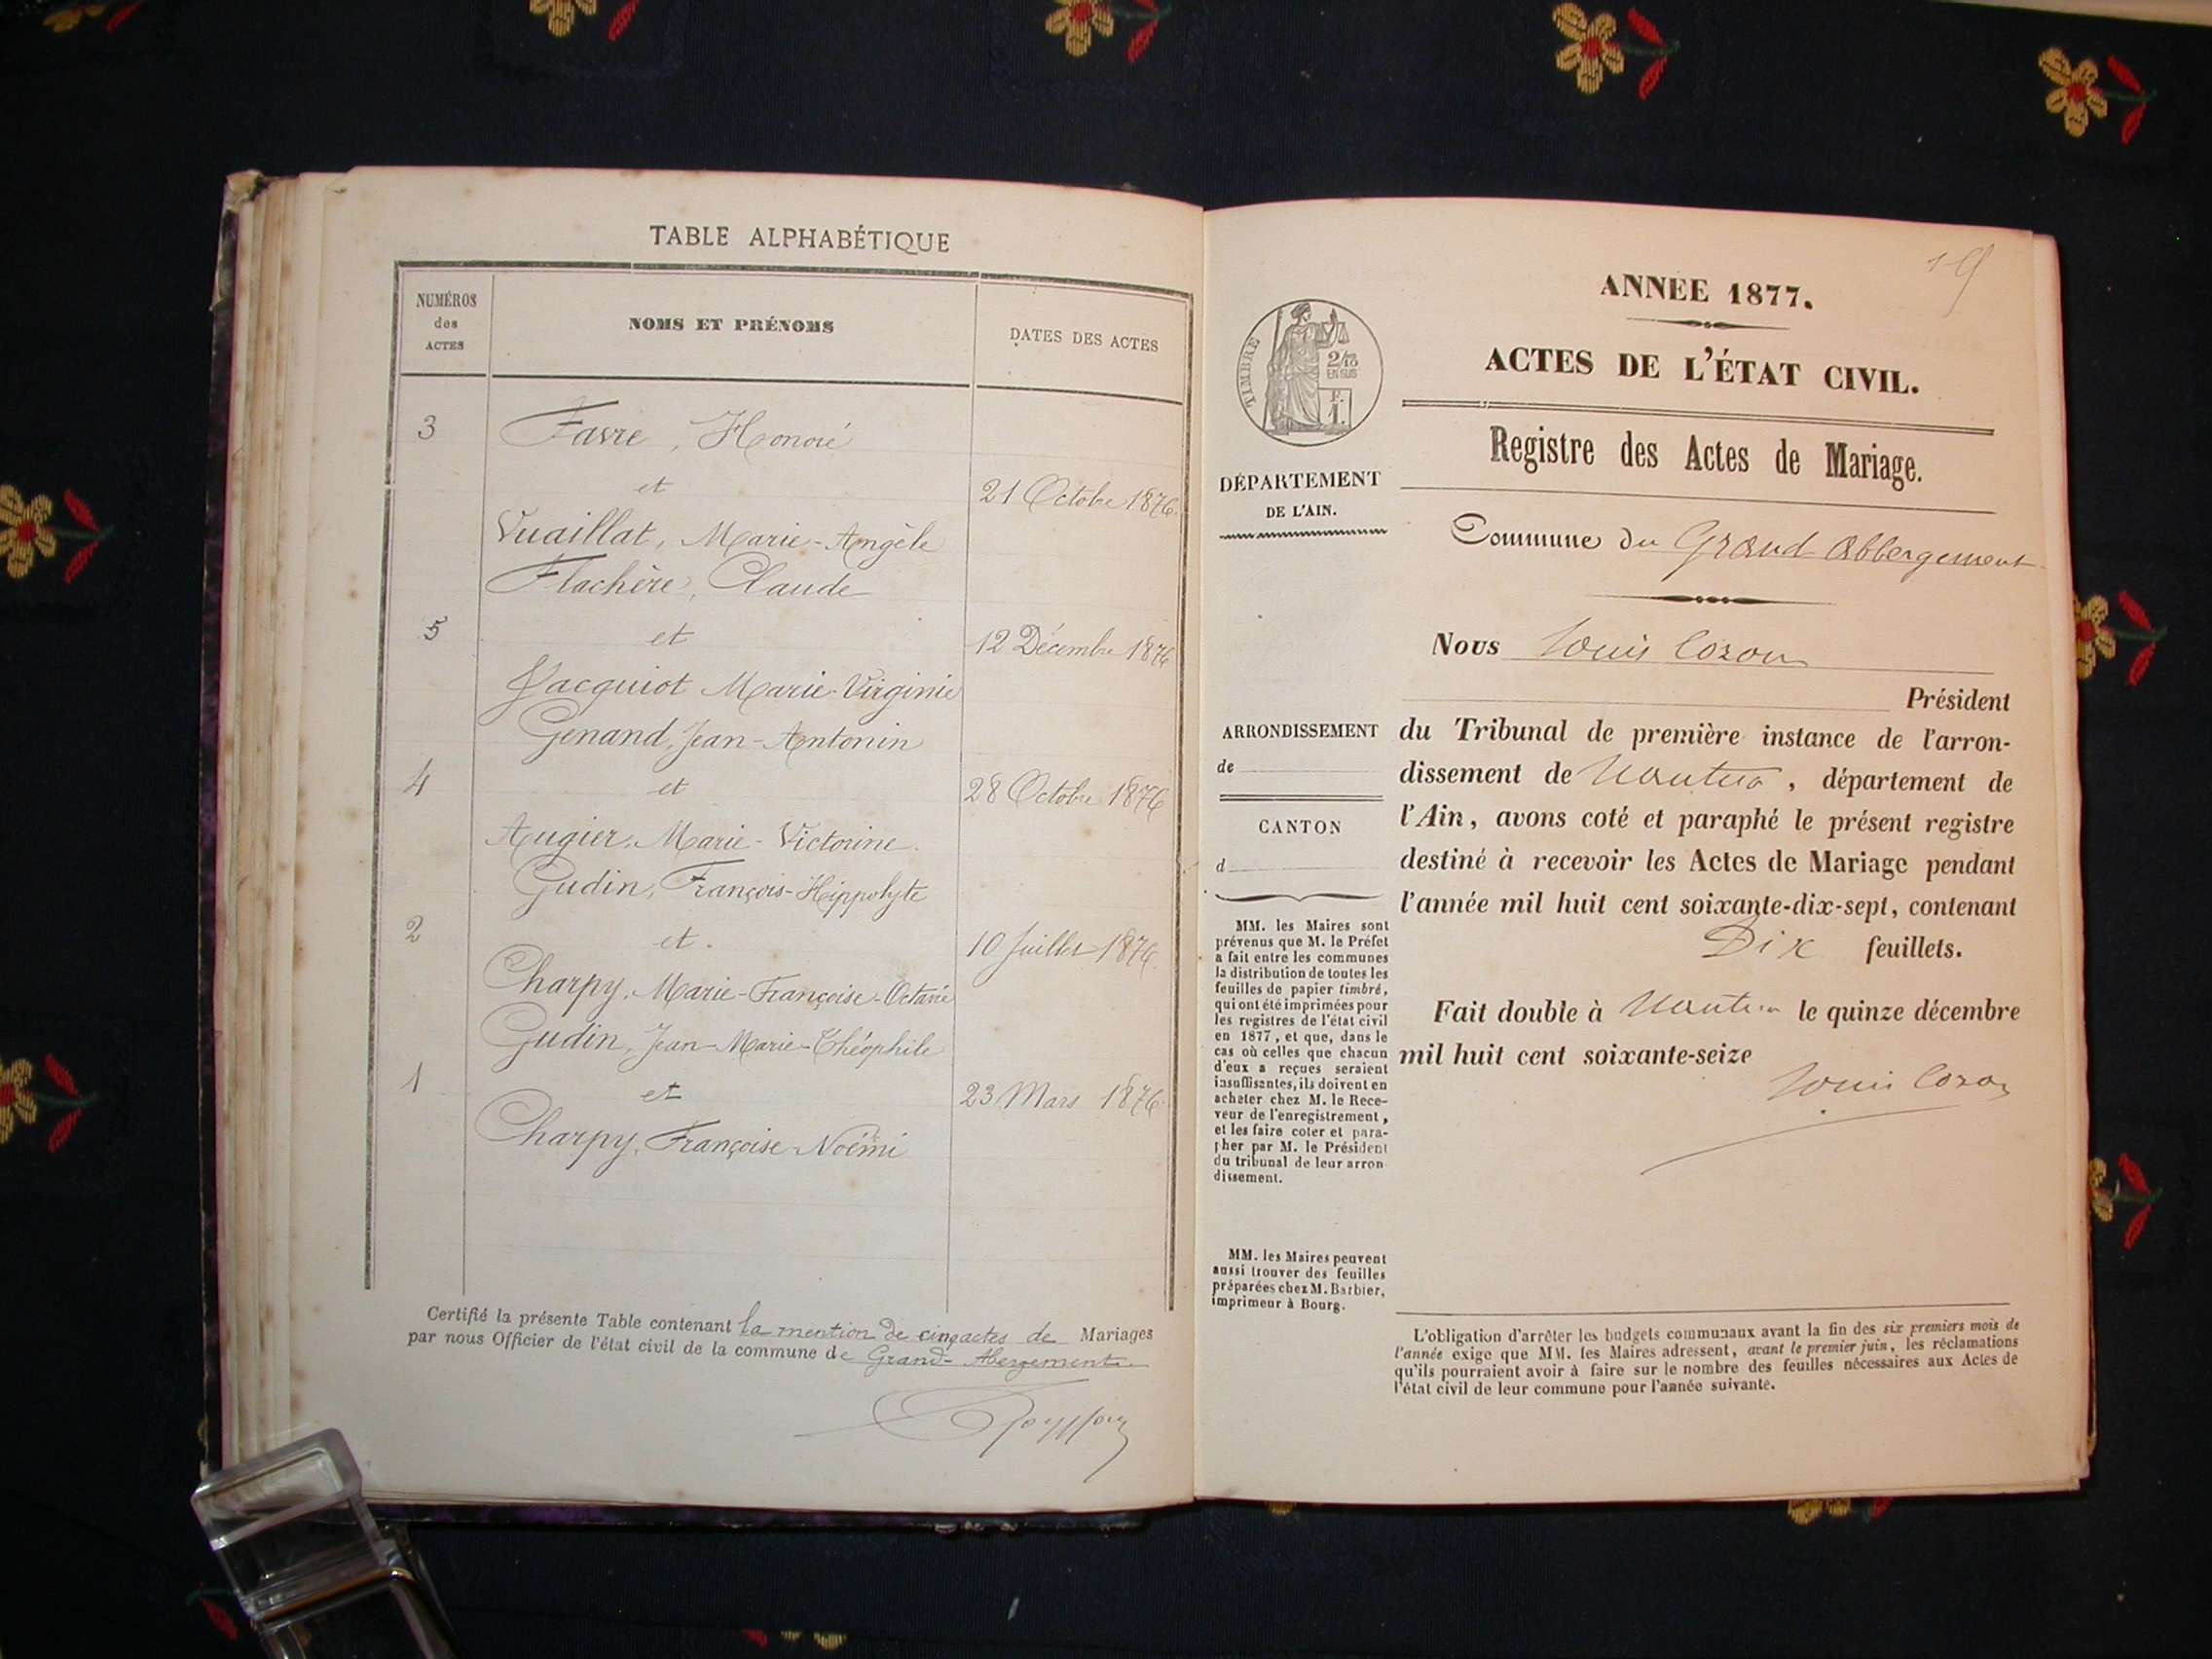 TABLE ALPHABÉTIQUE
NUMÉROS
des
ACTES
NOMS ET PRÉNOMS
DATES DES ACTES
3
Favre, Honoré
et
21 Octobre 1876.
Vuaillat, Marie-Angèle
Flachère, Claude
5
et
12 Décembre 1876
Jacquiot Marie-Virginie
Genand, Jean-Antonin
4
et
28 Octobre 1876
Augier, Marie-Victorine.
Gudin, François-Hippolyte
2
et.
10 Juillet 1876.
Charpy, Marie-Françoise-Octavie
Gudin, Jean-Marie-Théophile
1
et
23 Mars 1876.
Charpy, Françoise-Noémi
Certifié la présente Table contenant la mention de cinq actes de Mariages
par nous Officier de l'état civil de la commune de Grand-Abergement.
ANNÉE 1877.
ACTES DE L'ÉTAT CIVIL.
Registre des Actes de Mariage.
TIMBRE
2/10
EN SUS
F.
1.
DÉPARTEMENT
DE L'AIN.
Commune du Grand Abbergement
Nous Louis Cozon
Président
ARRONDISSEMENT
de
CANTON
d
du Tribunal de première instance de l'arron-
dissement de Nantua, département de
l'Ain, avons coté et paraphé le présent registre
destiné à recevoir les Actes de Mariage pendant
l'année mil huit cent soixante-dix-sept, contenant
Dix feuillets.
Fait double à Nantua le quinze décembre
mil huit cent soixante-seize
Louis Cozon
MM. les Maires sont
prévenus que M. le Préfet
a fait entre les communes
la distribution de toutes les
feuilles de papier timbré,
qui ont été imprimées pour
les registres de l'état civil
en 1877, et que, dans le
cas où celles que chacun
d'eux a reçues seraient
insuffisantes, ils doivent en
acheter chez M. le Rece-
veur de l'enregistrement,
et les faire coter et para-
pher par M. le Président
du tribunal de leur arron-
dissement.
MM. les Maires peuvent
aussi trouver des feuilles
préparées chez M. Barbier,
imprimeur à Bourg.
L'obligation d'arrêter les budgets communaux avant la fin des six premiers mois de
l'année exige que MM. les Maires adressent, avant le premier juin, les réclamations
qu'ils pourraient avoir à faire sur le nombre des feuilles nécessaires aux Actes de
l'état civil de leur commune pour l'année suivante.